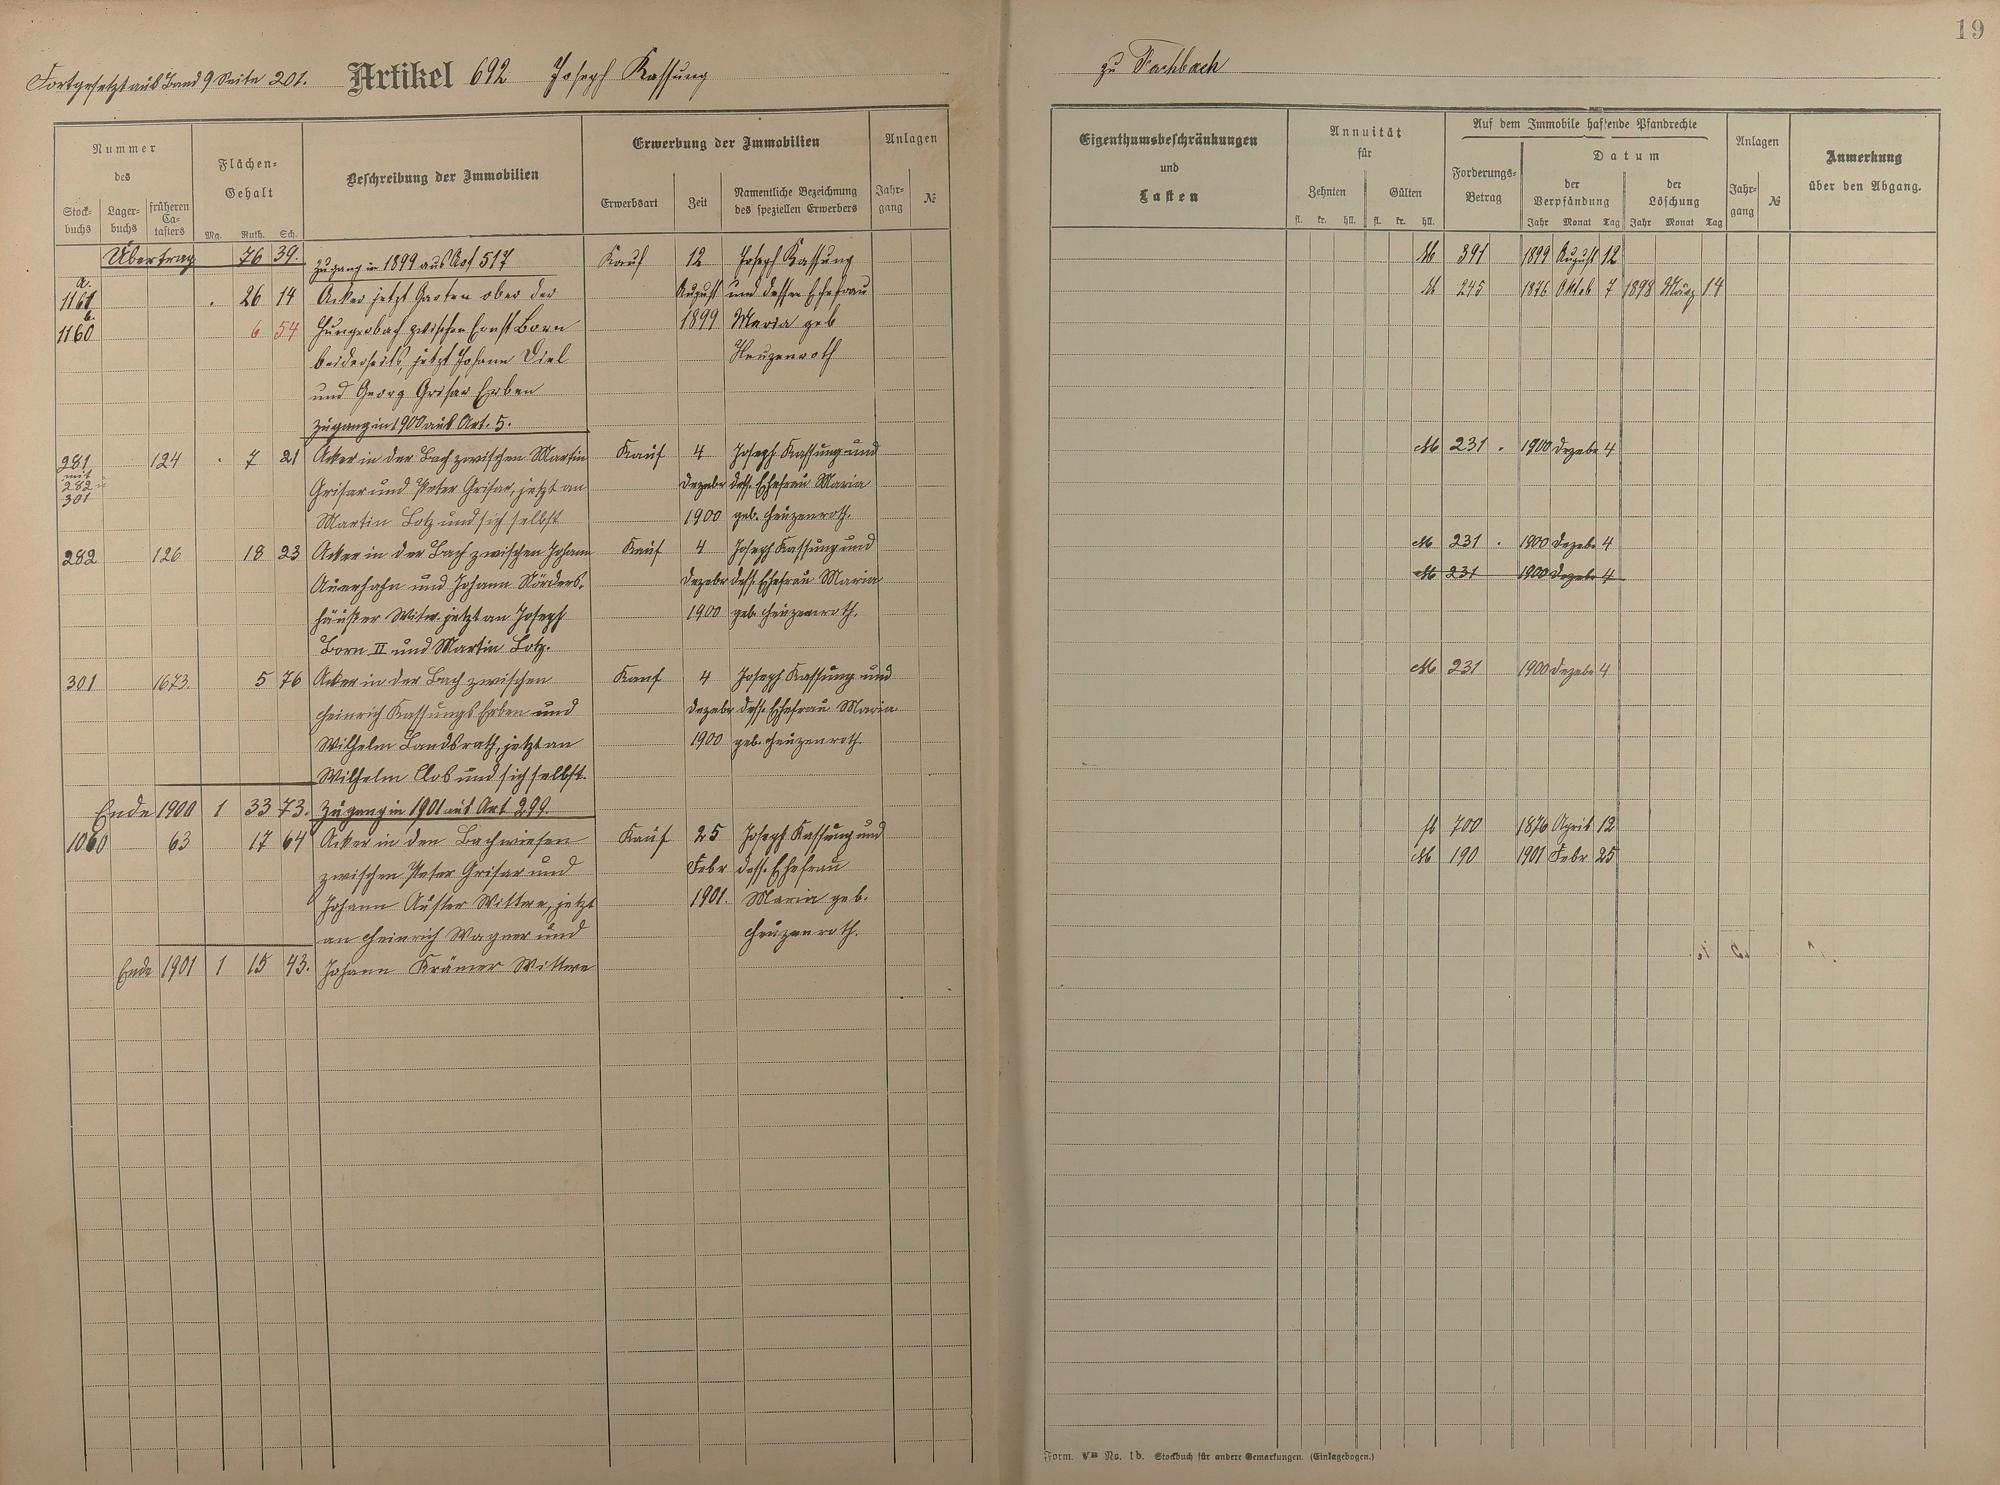 19
Fortgesetzt aus Band 9 Seite 201. Artikel 692 Joseph Kassung
zu Fachbach
Nummer
des
Stock-
buchs
Lager-
buchs
früheren
Ca-
tasters
Flächen-
Gehalt
Mg. Ruth. Sch.
Beschreibung der Immobilien
Erwerbung der Immobilien
Erwerbsart
Zeit
Namentliche Bezeichnung
des speziellen Erwerbers
Anlagen
Jahr-
gang
№
Eigenthumsbeschränkungen
und
Lasten
Annuität
für
Zehnten
Gülten
fl. kr. hll. fl. kr. hll.
Auf dem Immobile haftende Pfandrechte
Forderungs-
Betrag
Datum
der
Verpfändung
Jahr Monat Tag
der
Löschung
Jahr Monat Tag
Anlagen
Jahr-
gang
№
Anmerkung
über den Abgang.
Übertrag 76 39. Zugang in 1899 aus Art 517 Kauf 12 Joseph Kassung M 391 1899 August 12
a.
1161 . 26 14 Acker jetzt Garten ober der August und dessen Ehefrau M 245 1876 Oktob 7 1898 März 14
b.
1160 6 54 Hungerbach zwischen Ernst Born 1899 Maria geb
beiderseits, jetzt Johann Diel Heuzenroth
und Georg Grisar Erben
Zugang in 1900 aus Art. 5.
281 124 . 7 21 Acker in der Bach zwischen Martin Kauf 4 Joseph Kassung und M 231 . 1900 Dezebr 4
mit
282 u
301
Grisar und Peter Grisar, jetzt an Dezebr dess. Ehefrau Maria
Martin Lotz und sich selbst 1900 geb. Heuzenroth.
282 126 18 23 Acker in der Bach zwischen Johann Kauf 4 Joseph Kassung und M 231 . 1900 Dezebr 4
Auerhahn und Johann Nörders- Dezebr dess. Ehefrau Maria M 231 1900 Dezebr 4
häuser Witw. jetzt an Joseph 1900 geb. Heuzenroth.
Born II und Martin Lotz.
301 1673. 5 76 Acker in der Bach zwischen Kauf 4 Joseph Kassung und M 231 1900 Dezebr 4
Heinrich Kassungs Erben und Dezebr dess. Ehefrau Maria
Wilhelm Landsrath, jetzt an 1900 geb. Heuzenroth.
Wilhelm Clos und sich selbst.
Ende 1900 1 33 73. Zugang in 1901 aus Art 299.
1060 63 17 64 Acker in den Bachwiesen Kauf 25 Joseph Kassung und fl 700 1876 April 12
zwischen Peter Grisar und Febr dess. Ehefrau M 190 1901 Febr 25
Johann Auster Wittwe, jetzt 1901. Maria geb.
an Heinrich Wagner und Heuzenroth.
Ende 1901 1 15 43. Johann Krämer Wittwe
Form. VB No. 1b. Stockbuch für andere Gemarkungen. (Einlagebogen.)